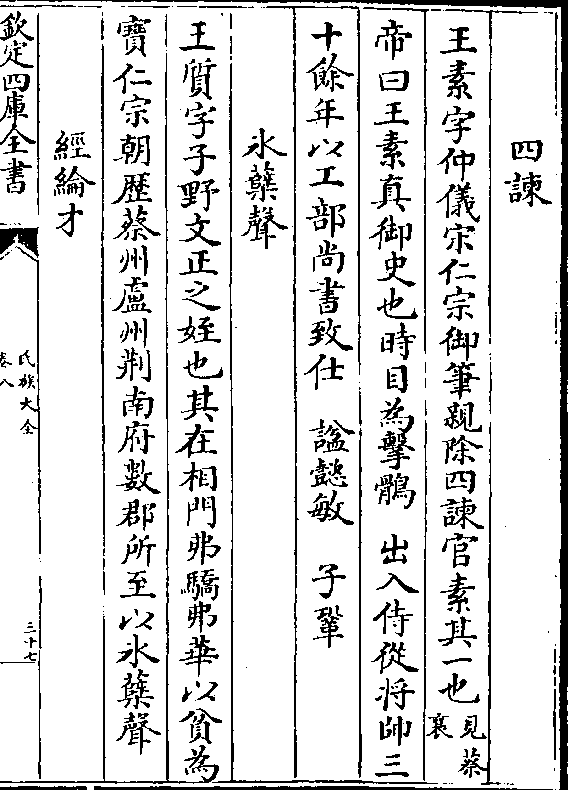 四諫
王素字仲儀宋仁宗御筆親除四諫官素其一也見蔡襄
帝曰王素真御史也時目為擊鶻　出入侍從將帥三
十餘年以工部尚書致仕　諡懿敏　子鞏
氷蘗聲
王質字子野文正之姪也其在相門弗驕弗華以貧為
寶仁宗朝歷蔡州盧州荆南府數郡所至以氷蘗聲
經綸才
欽定四庫全書
氏族大全
卷八
三十七